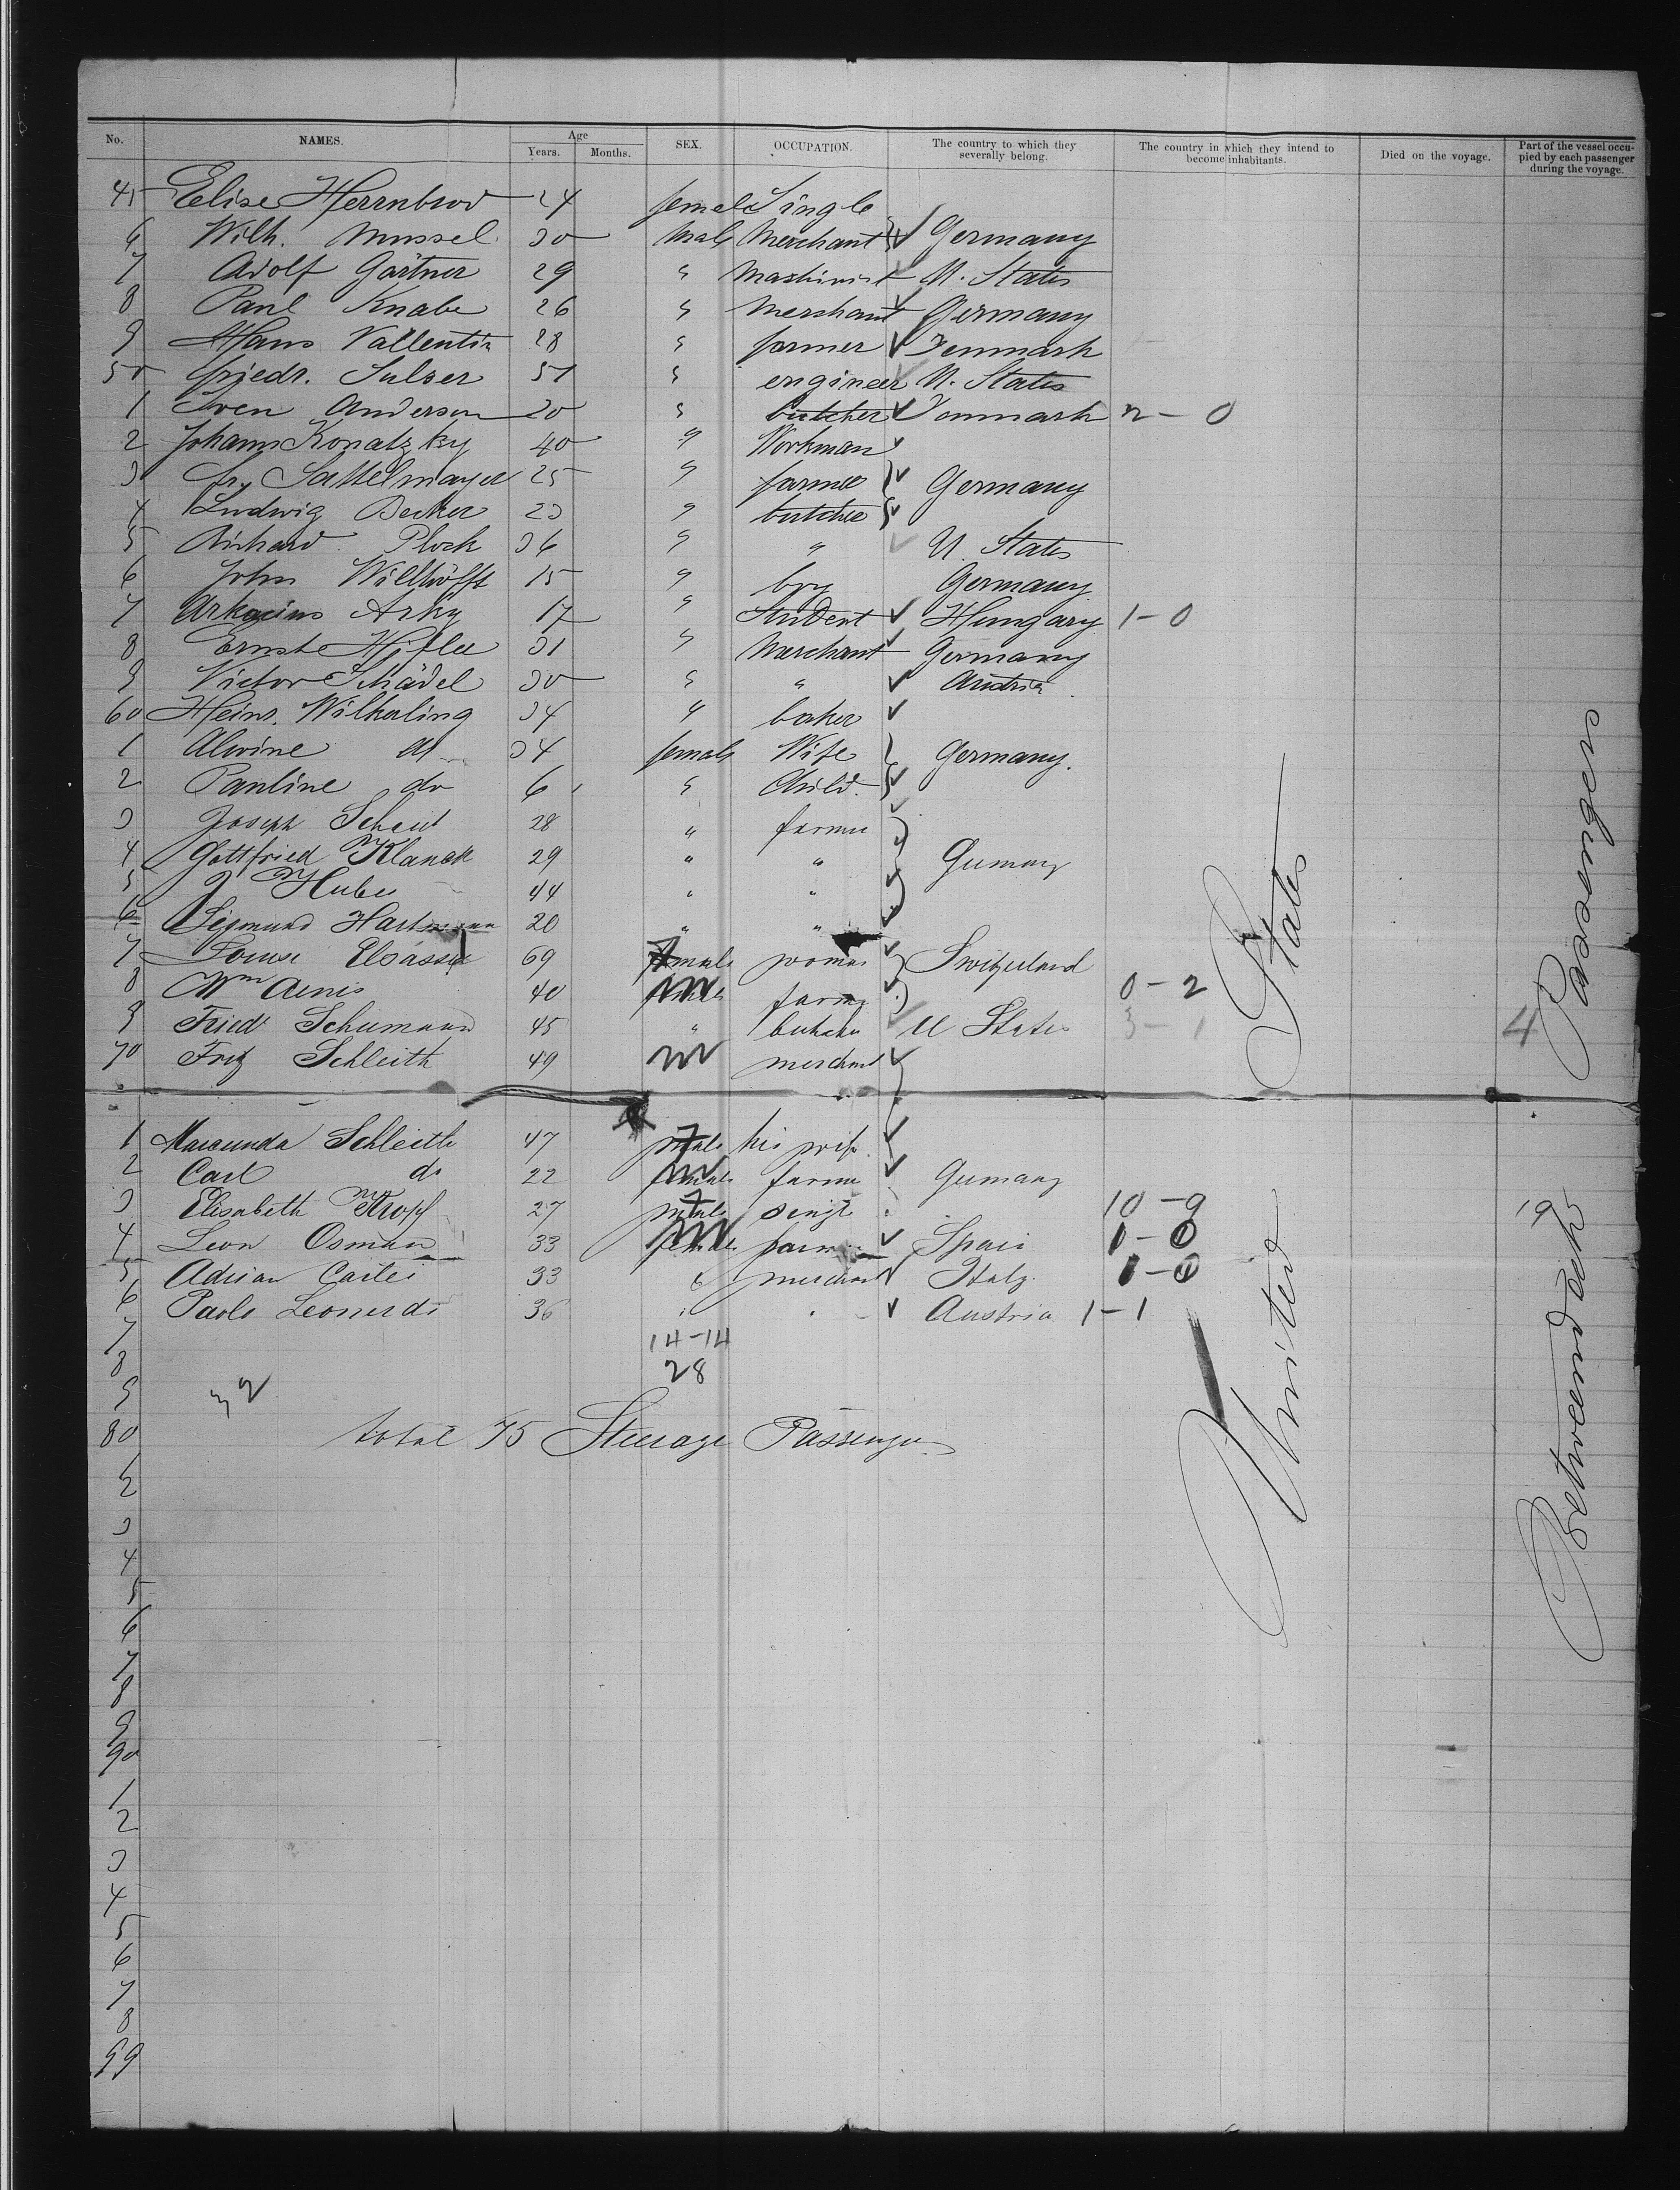 No. NAMES. Age Years. Months. SEX. OCCUPATION. The country to which they severally belong. The country in which they intend to become inhabitants. Died on the voyage. Part of the vessel occupied by each passenger during the voyage.
45 Elise Herrnbrod 24 female Single
6 Wilh. Mussel 30 male Merchant Germany
7 Adolf Gärtner 29 " Mashinist U. States
8 Paul Knabe 26 " Merchant Germany
9 Hans Vallentin 28 " farmer Denmark
50 friedr. Sulzer 51 " engineer U. States
1 Sven Anderson 20 " butcher Denmark 2 - 0
2 Johann Konatzky 40 " Workman
3 Fr. Sattelmayer 25 " farmer Germany
4 Ludwig Becker 23 " butcher
5 Richard Plock 36 " " U. States
6 John Willhöfft 15 " boy Germany
7 Arky 17 " Student Hungary 1 - 0
8 Ernst 31 " Merchant Germany
9 Victor Schädel 30 " " Austria
60 Heinr. Wilkerling 34 " baker
1 Alwine do 34 female Wife Germany.
2 Pauline do 6 " Child.
3 Joseph Scheut 28 " farmer
4 Gottfried Klanck 29 " " Germany
5 J Huber 44 " "
6 Sigmund Hartmann 20 " "
7 Louise Elsässer 69 female woman Switzerland
8 Wm Aenis 40 m farmer 0 - 2
9 Fried Schumann 45 " butcher U States 3 - 1
70 Fritz Schleith 49 m merchant
1 Schleith 47 f his wife
2 Carl do 22 m farmer Germany
3 Elisabeth Kropf 27 f single 10 - 9
4 Leon Osman 33 m farmer Spain 1 - 0
5 Adrian Cailei 33 " merchant Italy 1 - 0
6 Paolo Leonerdi 36 " " Austria 1 - 1
7 14-14
8 28
9
80 total 75 Steerage Passenger
2
3
4
5
6
7
8
9
90
1
2
3
4
5
6
7
8
99
United States
4 Passengers
19
Betweendecks